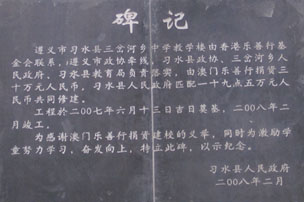 碑记
遵义市习水县三岔河乡中学教学楼由香港乐善行基
金会联系，遵义市政协牵线，习水县政协、三岔河乡人
民政府、习水县教育局负责落实，由澳门乐善行捐资三
十万元人民币，习水县人民政府匹配一十九点五万元人
民币共同修建。
工程於二00七年六月十三日吉日奠基，二00八年二
月竣工。
为感谢澳门乐善行捐资建校的义举，同时为激励学
童努力学习，奋发向上，特立此碑，以示纪念。
习水县人民政府
二00八年二月